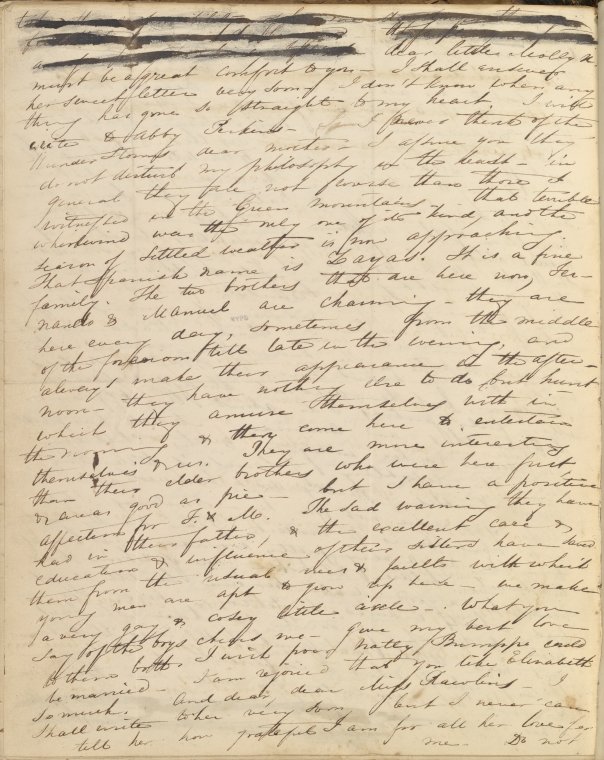 dear little Molly
must be a great comfort to you - I shall answer
her sweet letter very soon, I don't know when any
thing has gone so straight to my heart. I will
write to Abby Perkins -
Thunder Storms dear mother - I assure you they
do not disturb my philosophy in the least - in
general they are not worse than those I
witnessed in the Green mountains - that terrible
whirlwind was the only one of its kind, and the
season of settled weather is now approaching.
That Spanish name is Zayas. It is a fine
family. The two brothers that are here now, Fer-
nando & Manuel are charming - they are
here every day, sometimes from the middle
of the forenoon till late in the evening, and
always make their appearance in the after-
noon - they have nothing else to do but hunt
which they amuse themselves with in
the morning & they come here to entertain
themselves & us. They are more interesting
than their elder brothers who were here first
& are as good as pie - but I have a positive
affection for F. & M. The sad warning they have
had in their father, & the excellent care &
education & influence of their sisters have saved
them from the usual vices & faults with which
young men are apt to grow up here - we make
a very gay & cosey little circle - What you
say of the boys cheers me - give my best love
to them both. I wish poor Natty Bumppo could
be married - I am rejoiced that you like Elizabeth
so much. And dear dear Miss Rawlins - I
shall write to her very soon, but I never can
tell her how grateful I am for all her love for
me - Do not